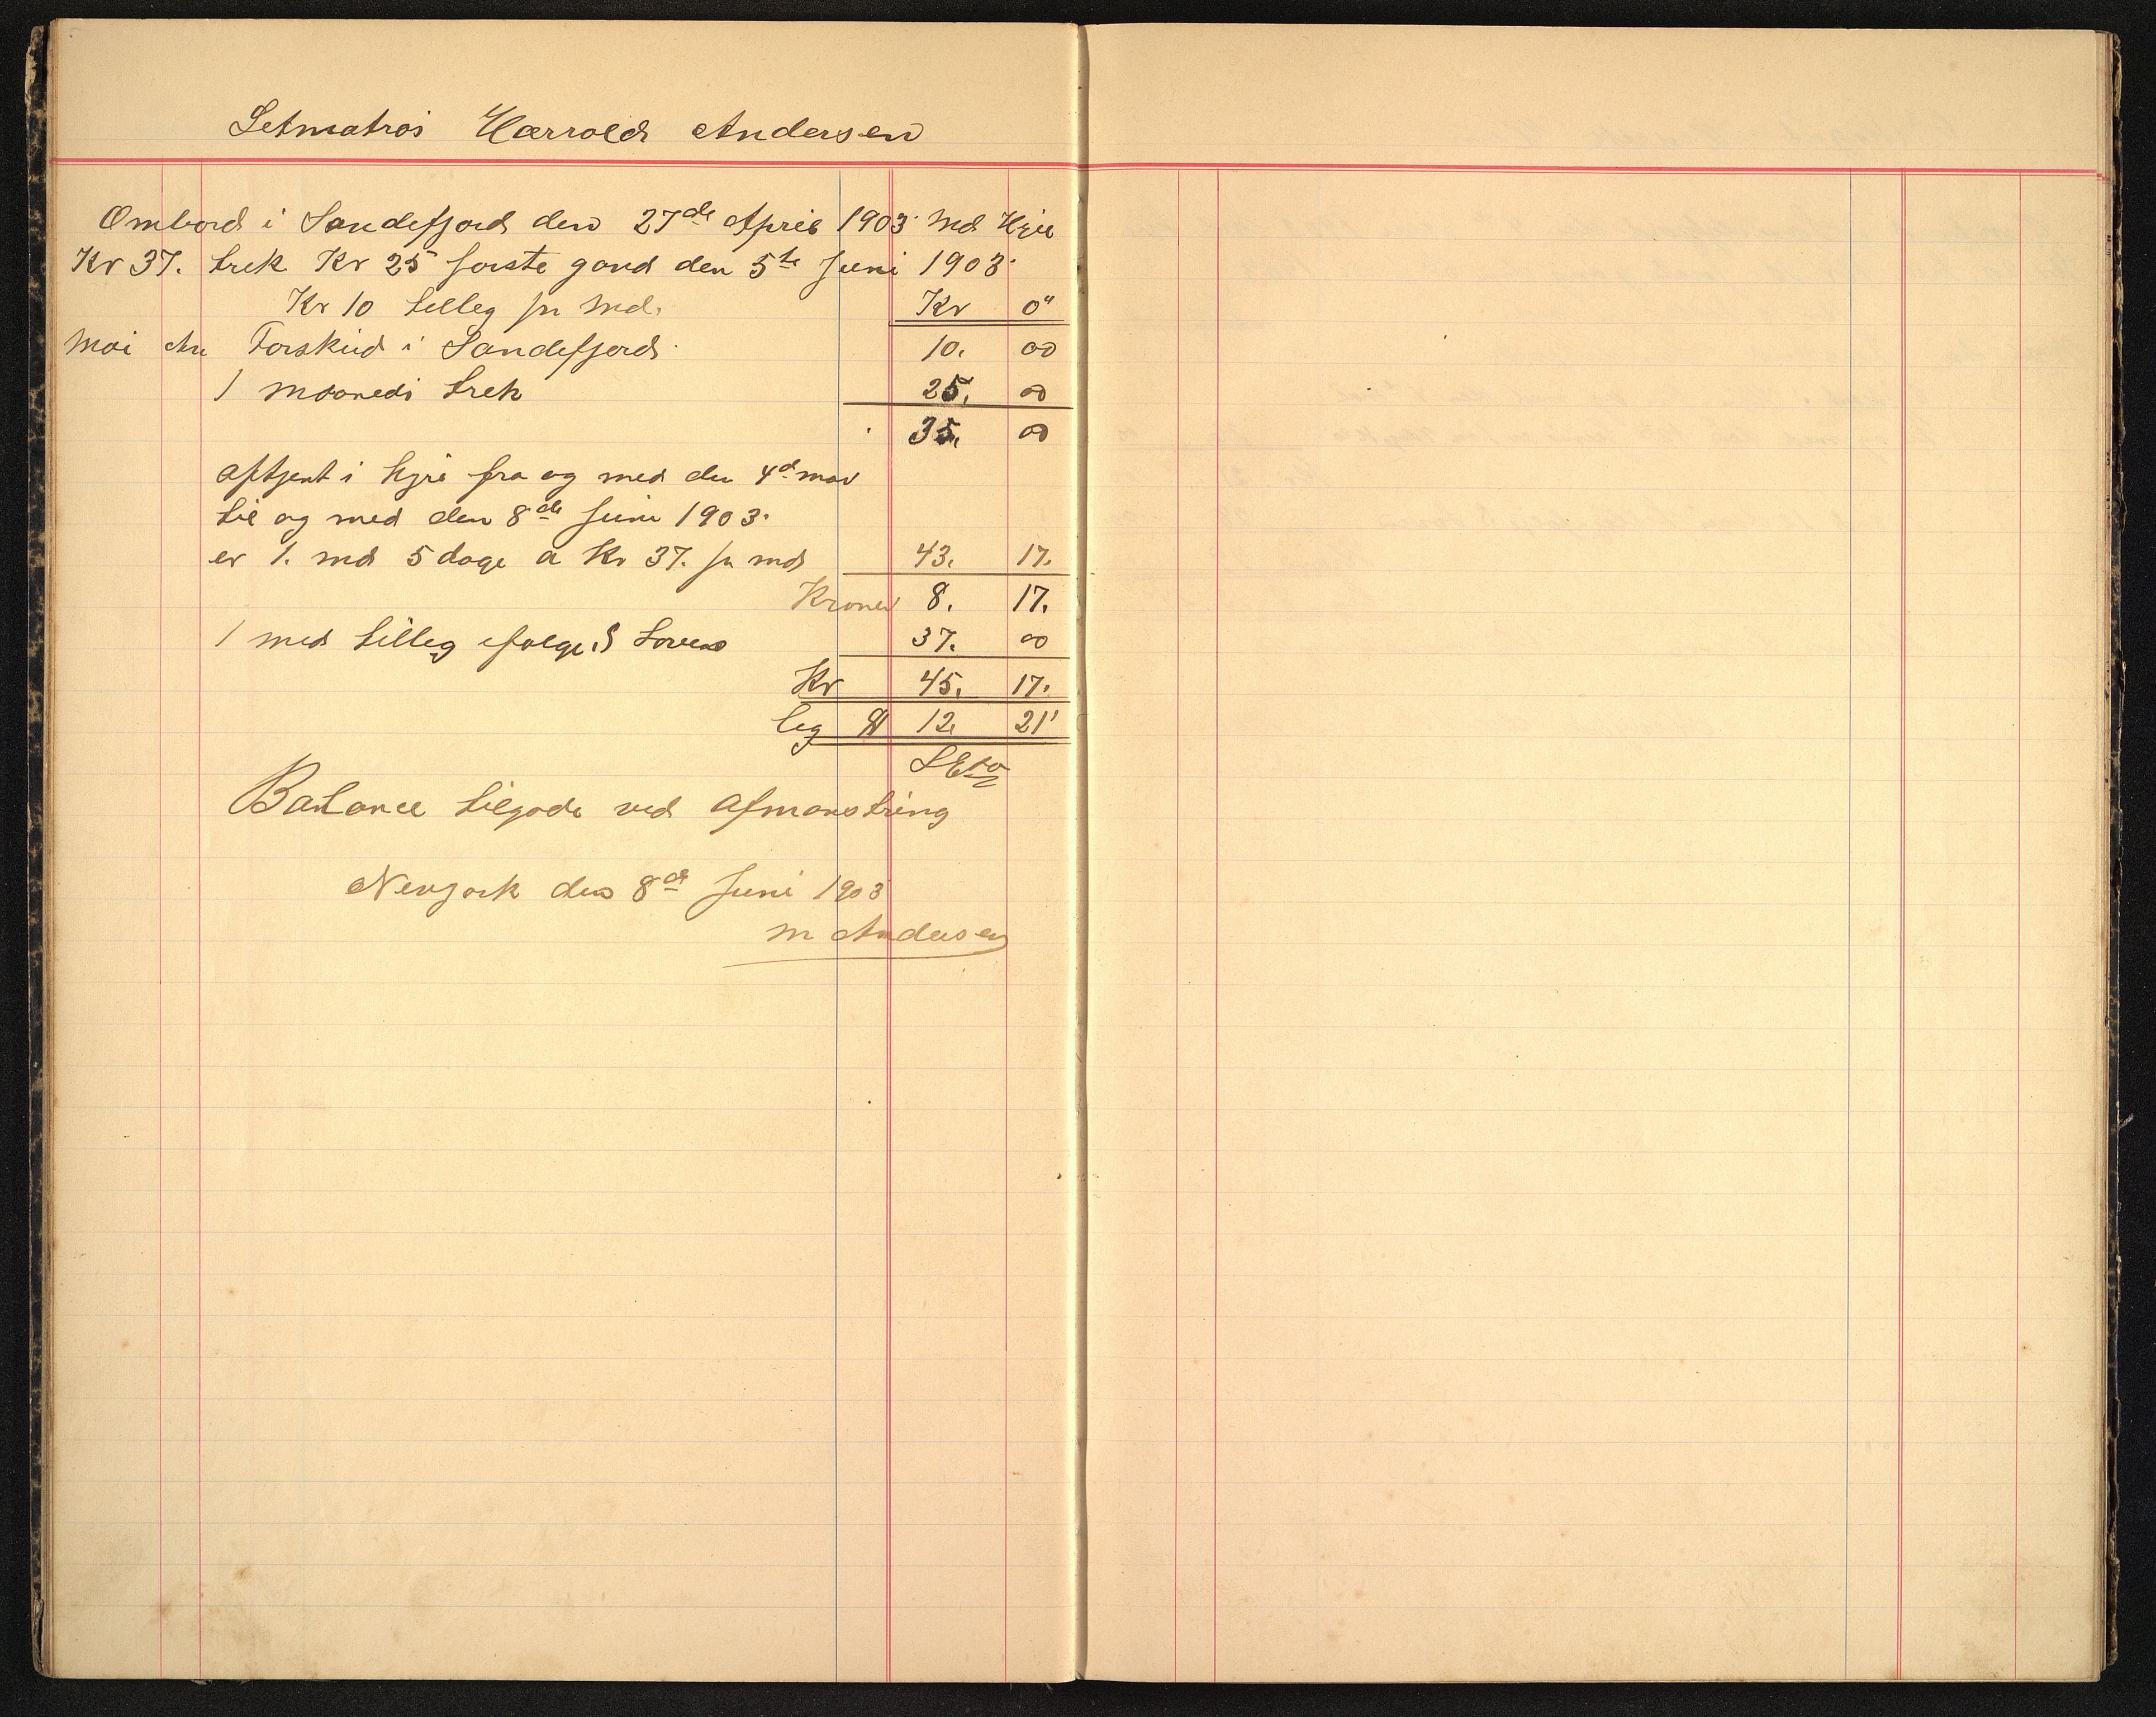 Letmatros Harrold Andersen
Ombord i Sandefjord den 27de April 1903 Md Hyre
Kr 37. trek Kr 25 forste gand den 5te Juni 1903
Kr 10 tilleg pr Md. Kr 0"
Mai An Forskud i Sandefjord 10. 00
1 maaneds trek 25. 00
35. 00
aftjent i hyre fra og med den 4d mai
til og med den 8de Juni 1903.
er 1. md 5 dage a Kr 37. pr md 43. 17.
Kroner 8. 17.
1 md tilleg ifølge Loven 37. 00
Kr 45. 17.
lig $ 12. 21
Balance tilgode ved afmønstring
Newyork den 8de Juni 1903
M Andersen